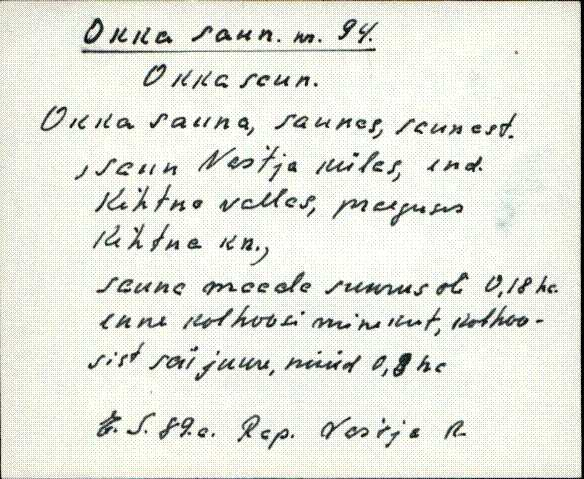 Okka saun. m. 94.
Okka saun.
Okka sauna, saunas, saunast.
, saun Vastja külas, end.
Kehtna vallas, praeguses
Kehtna kn.,
sauna maade suurus oli 0,18 ha
enne kolhoosi minekut, kolhoo-
sist sai juure, nüüd 0,8 ha
E. S. 89.a. Rap. R.